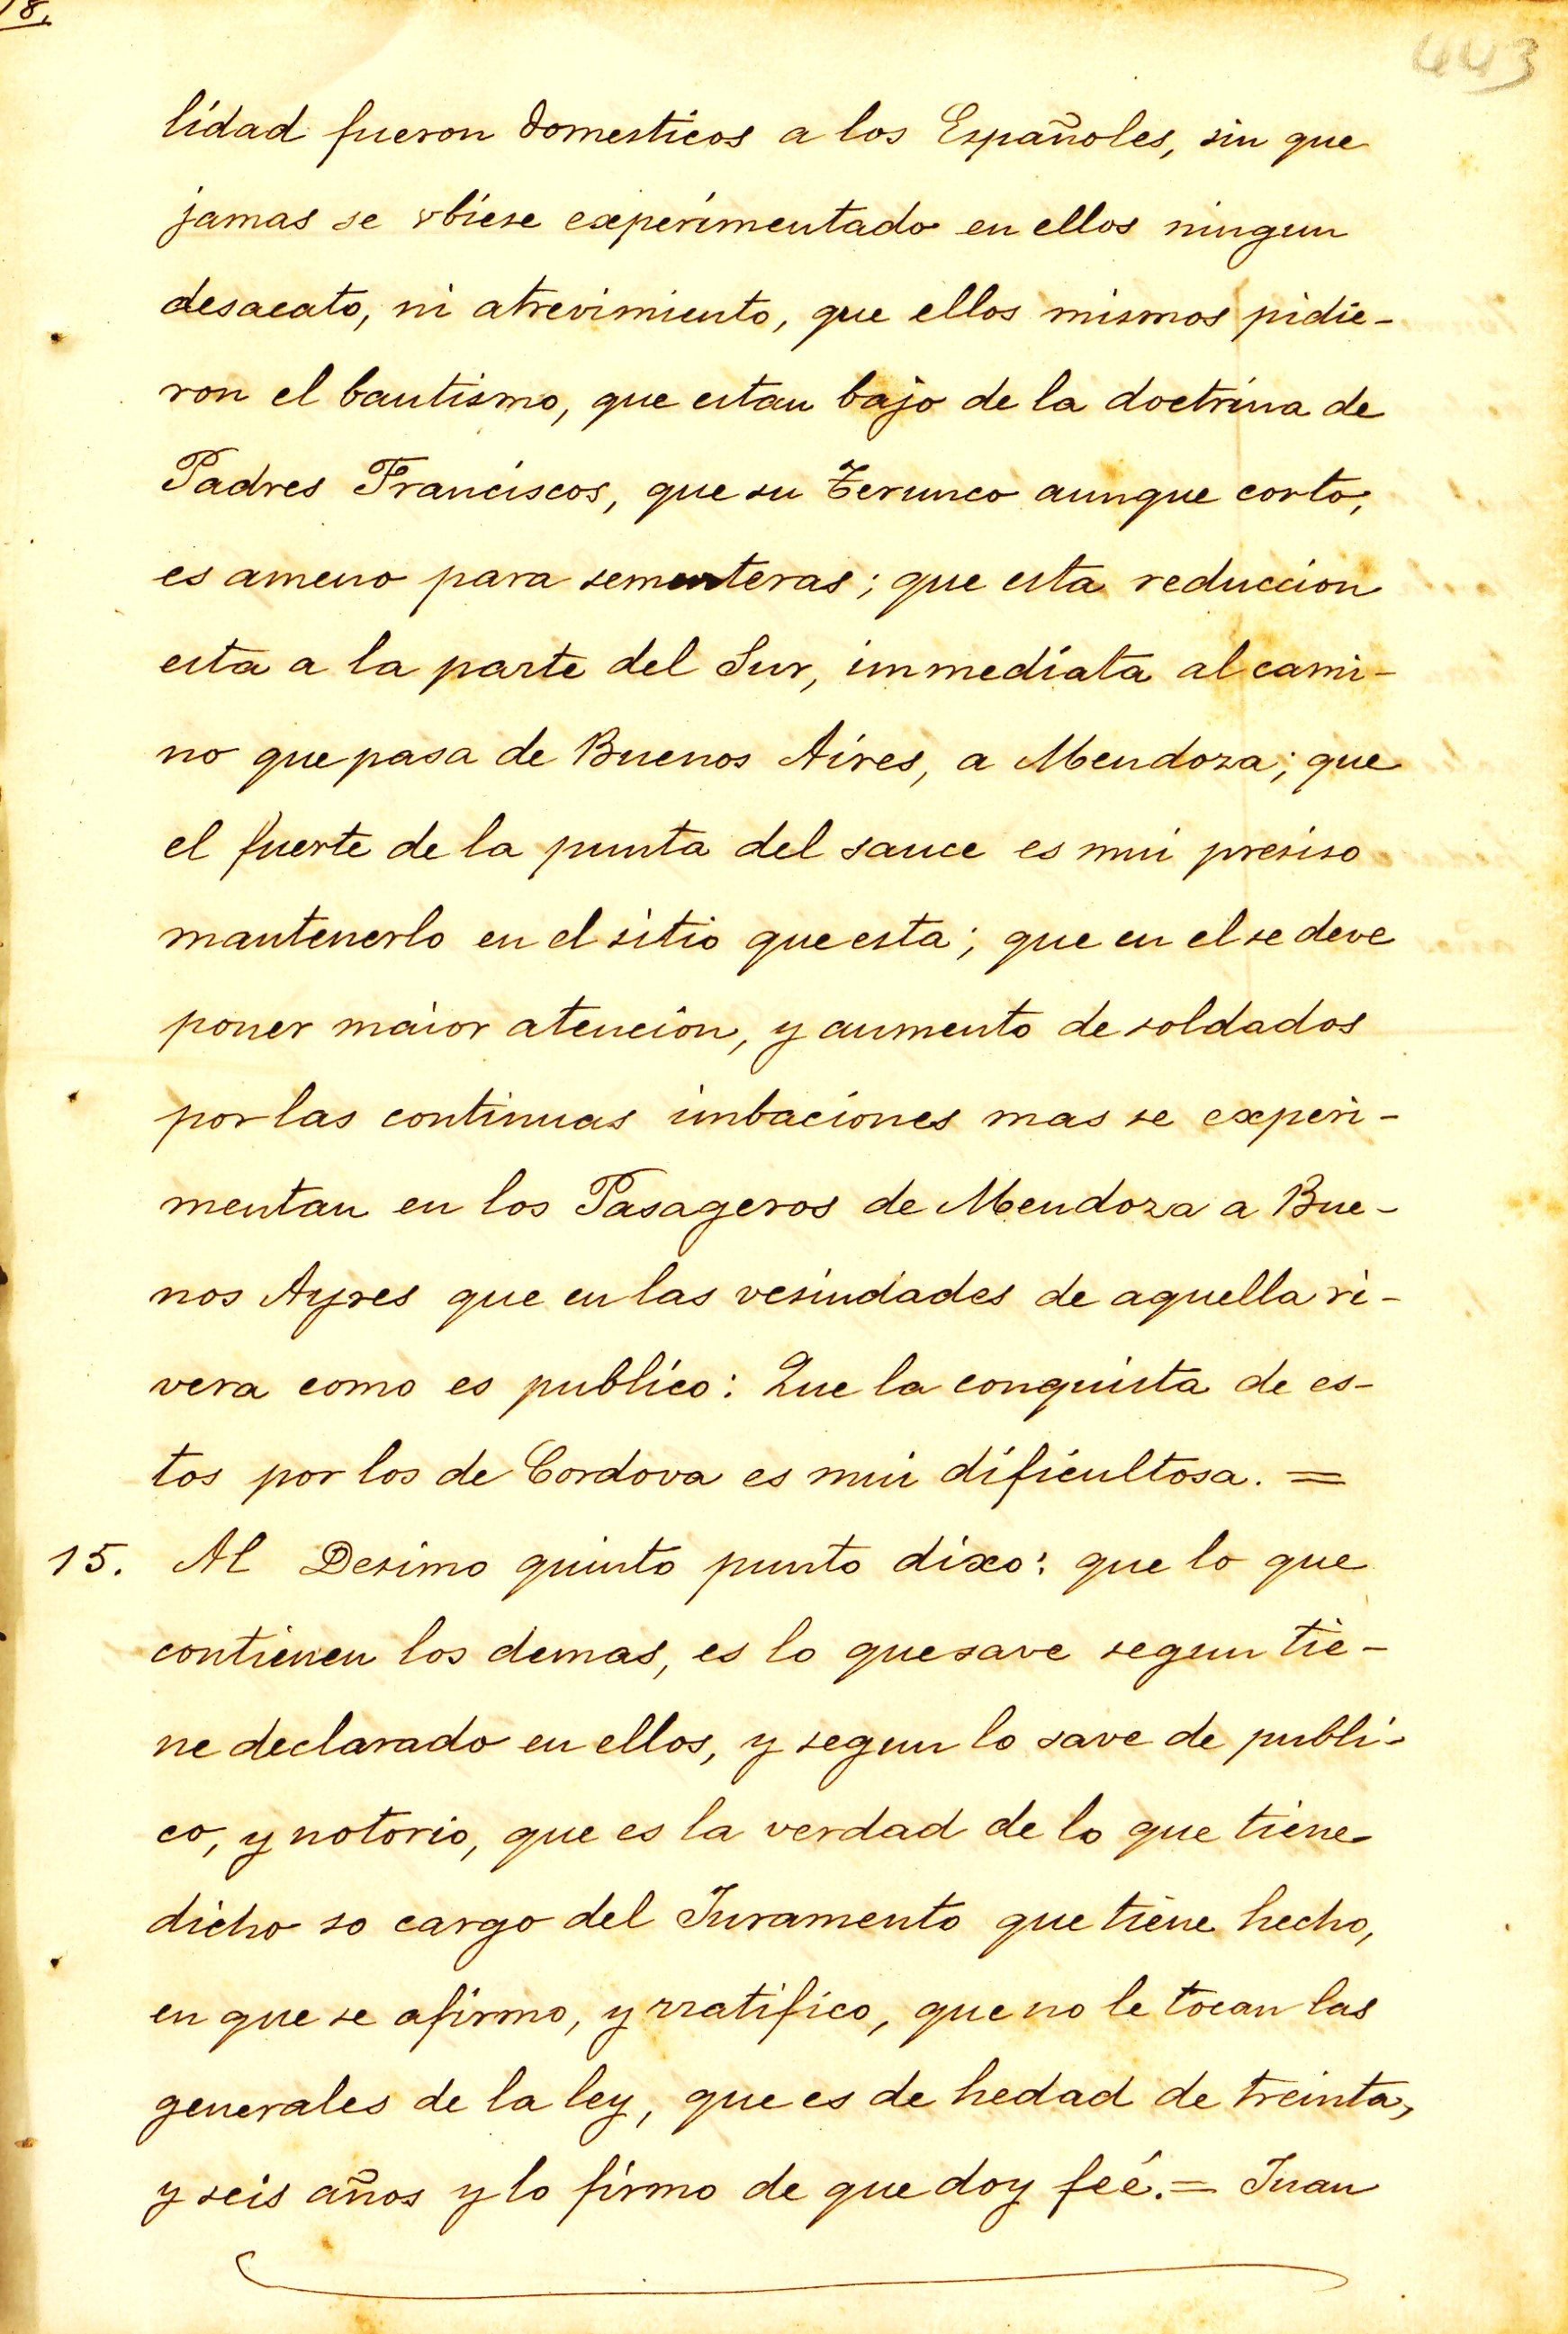 18.
443
lidad fueron domesticos a los Españoles, sin que
jamas se vbiese experimentado en ellos ningun
desacato, ni atrevimiento, que ellos mismos pidie-
ron el bautismo, que estan bajo de la doctrina de
Padres Franciscos, que su Terunco aunque corto,
es ameno para sementeras; que esta reduccion
esta a la parte del Sur, immediata al cami-
no que pasa de Buenos Aires, a Mendoza; que
el fuerte de la punta del sauce es mui presiso
mantenerlo en el sitio que esta; que en el se deve
poner maior atencion, y aumento de soldados
por las continuas imbaciones mas se experi-
mentan en los Pasageros de Mendoza a Bue-
nos Ayres que en las vesindades de aquella ri-
vera como es publico: Que la conquista de es-
tos por los de Cordova es mui dificultosa. =
15. Al Desimo quinto punto dixo: que lo que
contienen los demas, es lo que save segun tie-
ne declarado en ellos, y segun lo save de publi-
co, y notorio, que es la verdad de lo que tiene
dicho so cargo del Juramento que tiene hecho,
en que se afirmo, y rratifico, que no le tocan las
generales de la ley, que es de hedad de treinta,
y seis años y lo firmo de que doy feé. = Juan